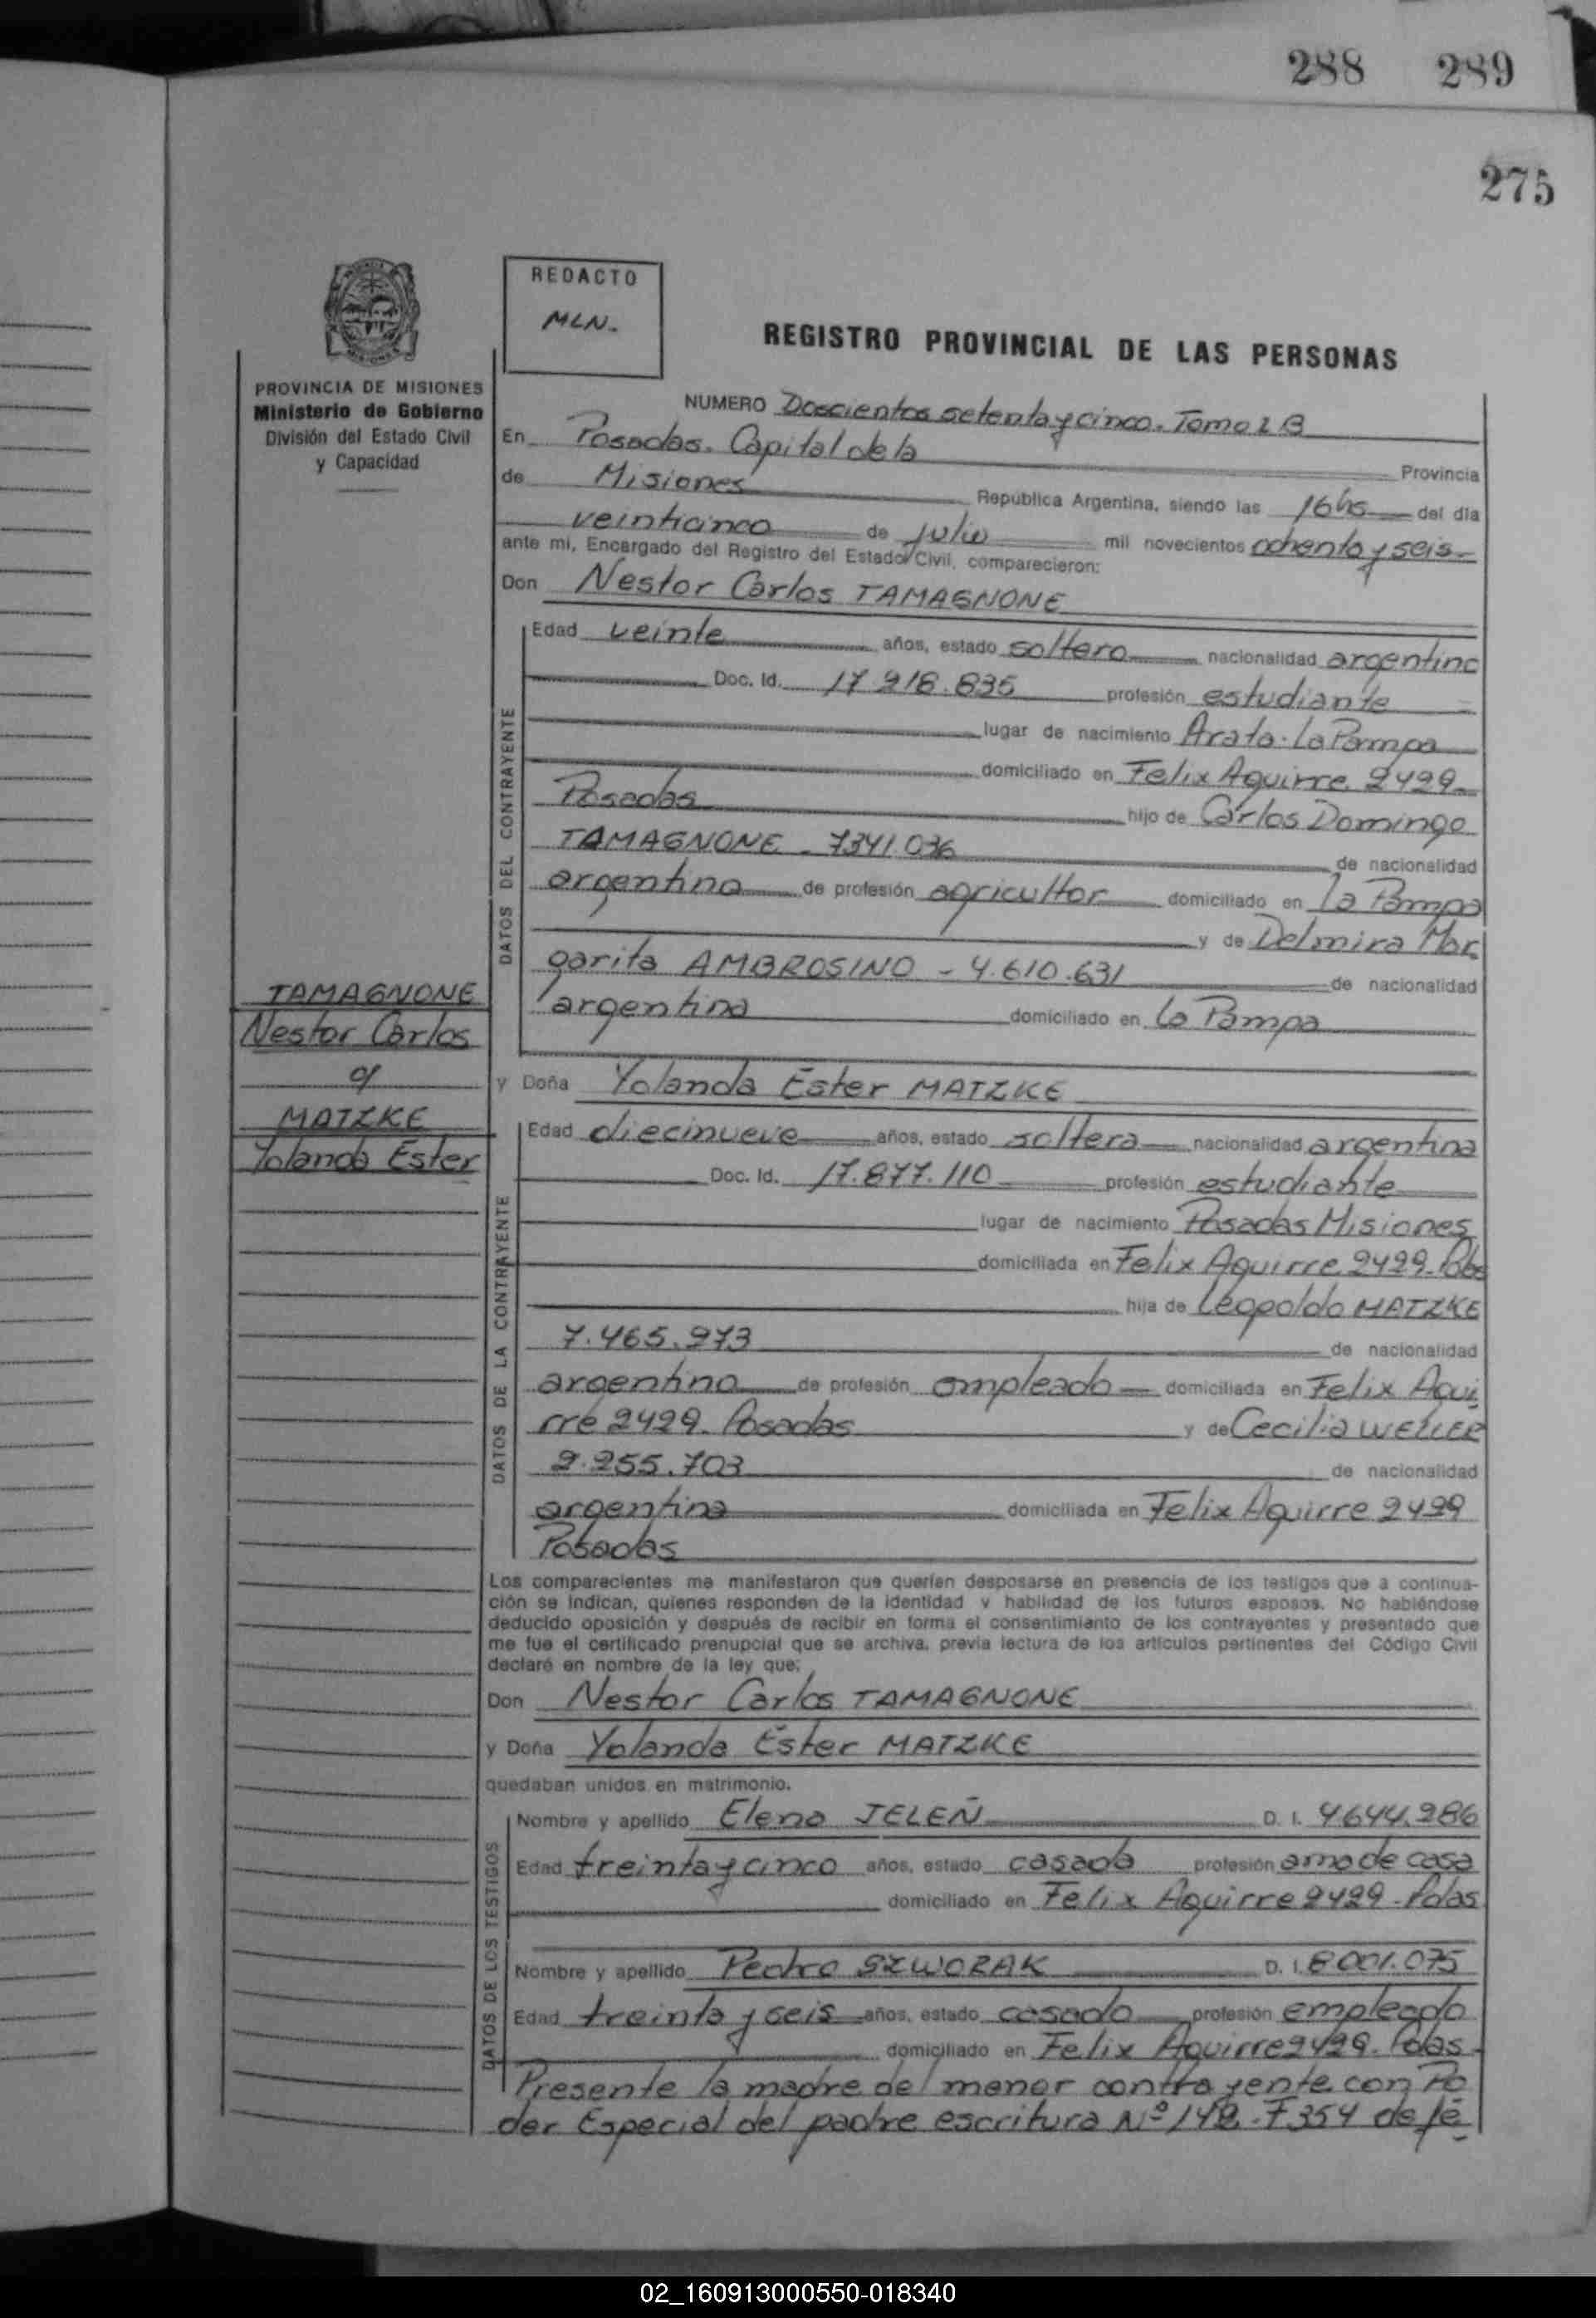 288 289
275
REDACTO
MLN.
REGISTRO PROVINCIAL DE LAS PERSONAS
PROVINCIA DE MISIONES
Ministerio de Gobierno
División del Estado Civil
y Capacidad
NUMERO Doscientos setenta y cinco. Tomo 2 B
En Posadas. Capital de la Provincia
de Misiones República Argentina, siendo las 16hs del día
veinticinco de julio mil novecientos ochenta y seis
ante mi, Encargado del Registro del Estado Civil, comparecieron:
Don Nestor Carlos TAMAGNONE
DATOS DEL CONTRAYENTE
Edad veinte años, estado soltero nacionalidad argentina
Doc. Id. 17.918.835 profesión estudiante
lugar de nacimiento Arata. La Pampa
domiciliado en Felix Aguirre 2429
Posadas hijo de Carlos Domingo
TAMAGNONE - 7341.036 de nacionalidad
argentina de profesión agricultor domiciliado en La Pampa
y de Delmira Mar
garita AMBROSINO - 4.610.631 de nacionalidad
argentina domiciliado en La Pampa
TAMAGNONE
Nestor Carlos
c/
MATZKE
Yolanda Ester
y Doña Yolanda Ester MATZKE
DATOS DE LA CONTRAYENTE
Edad diecinueve años, estado soltera nacionalidad argentina
Doc. Id. 17.877.110 profesión estudiante
lugar de nacimiento Posadas Misiones
domiciliada en Felix Aguirre 2429-Pdas
hija de Leopoldo MATZKE
7.465.973 de nacionalidad
argentina de profesión empleado domiciliada en Felix Agui
rre 2429. Posadas y de Cecilia
2.255.703 de nacionalidad
argentina domiciliada en Felix Aguirre 2429
Posadas
Los comparecientes me manifestaron que querían desposarse en presencia de los testigos que a continua-
ción se indican, quienes responden de la identidad y habilidad de los futuros esposos. No habiéndose
deducido oposición y después de recibir en forma el consentimiento de los contrayentes y presentado que
me fue el certificado prenupcial que se archiva, previa lectura de los artículos pertinentes del Código Civil
declaré en nombre de la ley que:
Don Nestor Carlos TAMAGNONE
y Doña Yolanda Ester MATZKE
quedaban unidos en matrimonio.
DATOS DE LOS TESTIGOS
Nombre y apellido Elena JELEÑ D. I. 4644.286
Edad treinta y cinco años, estado casada profesión ama de casa
domiciliado en Felix Aguirre 2429-Pdas
Nombre y apellido Pedro SZWORAK D. I. 8001.075
Edad treinta y seis años, estado casado profesión empleado
domiciliado en Felix Aguirre 2429. Pdas.
Presente la madre del menor contrayente con Po
der Especial del padre escritura Nº 142. F 354 de fé
02_160913000550-018340